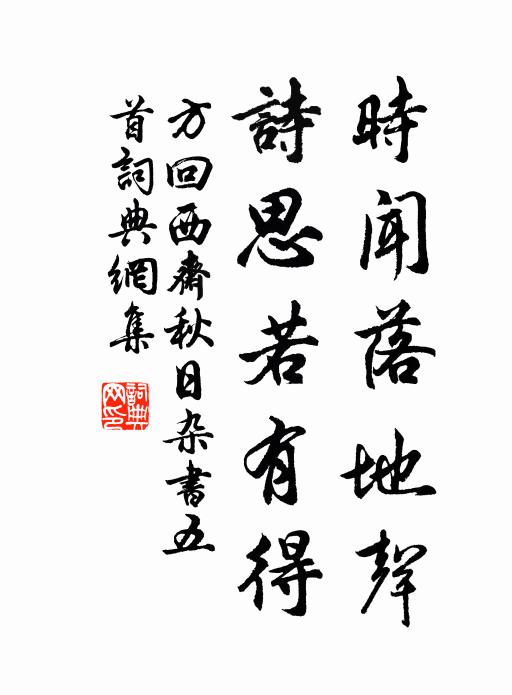 時聞落地聲
詩思若有得
方回西齋秋日杂書五
首詞典網集
詞典網印